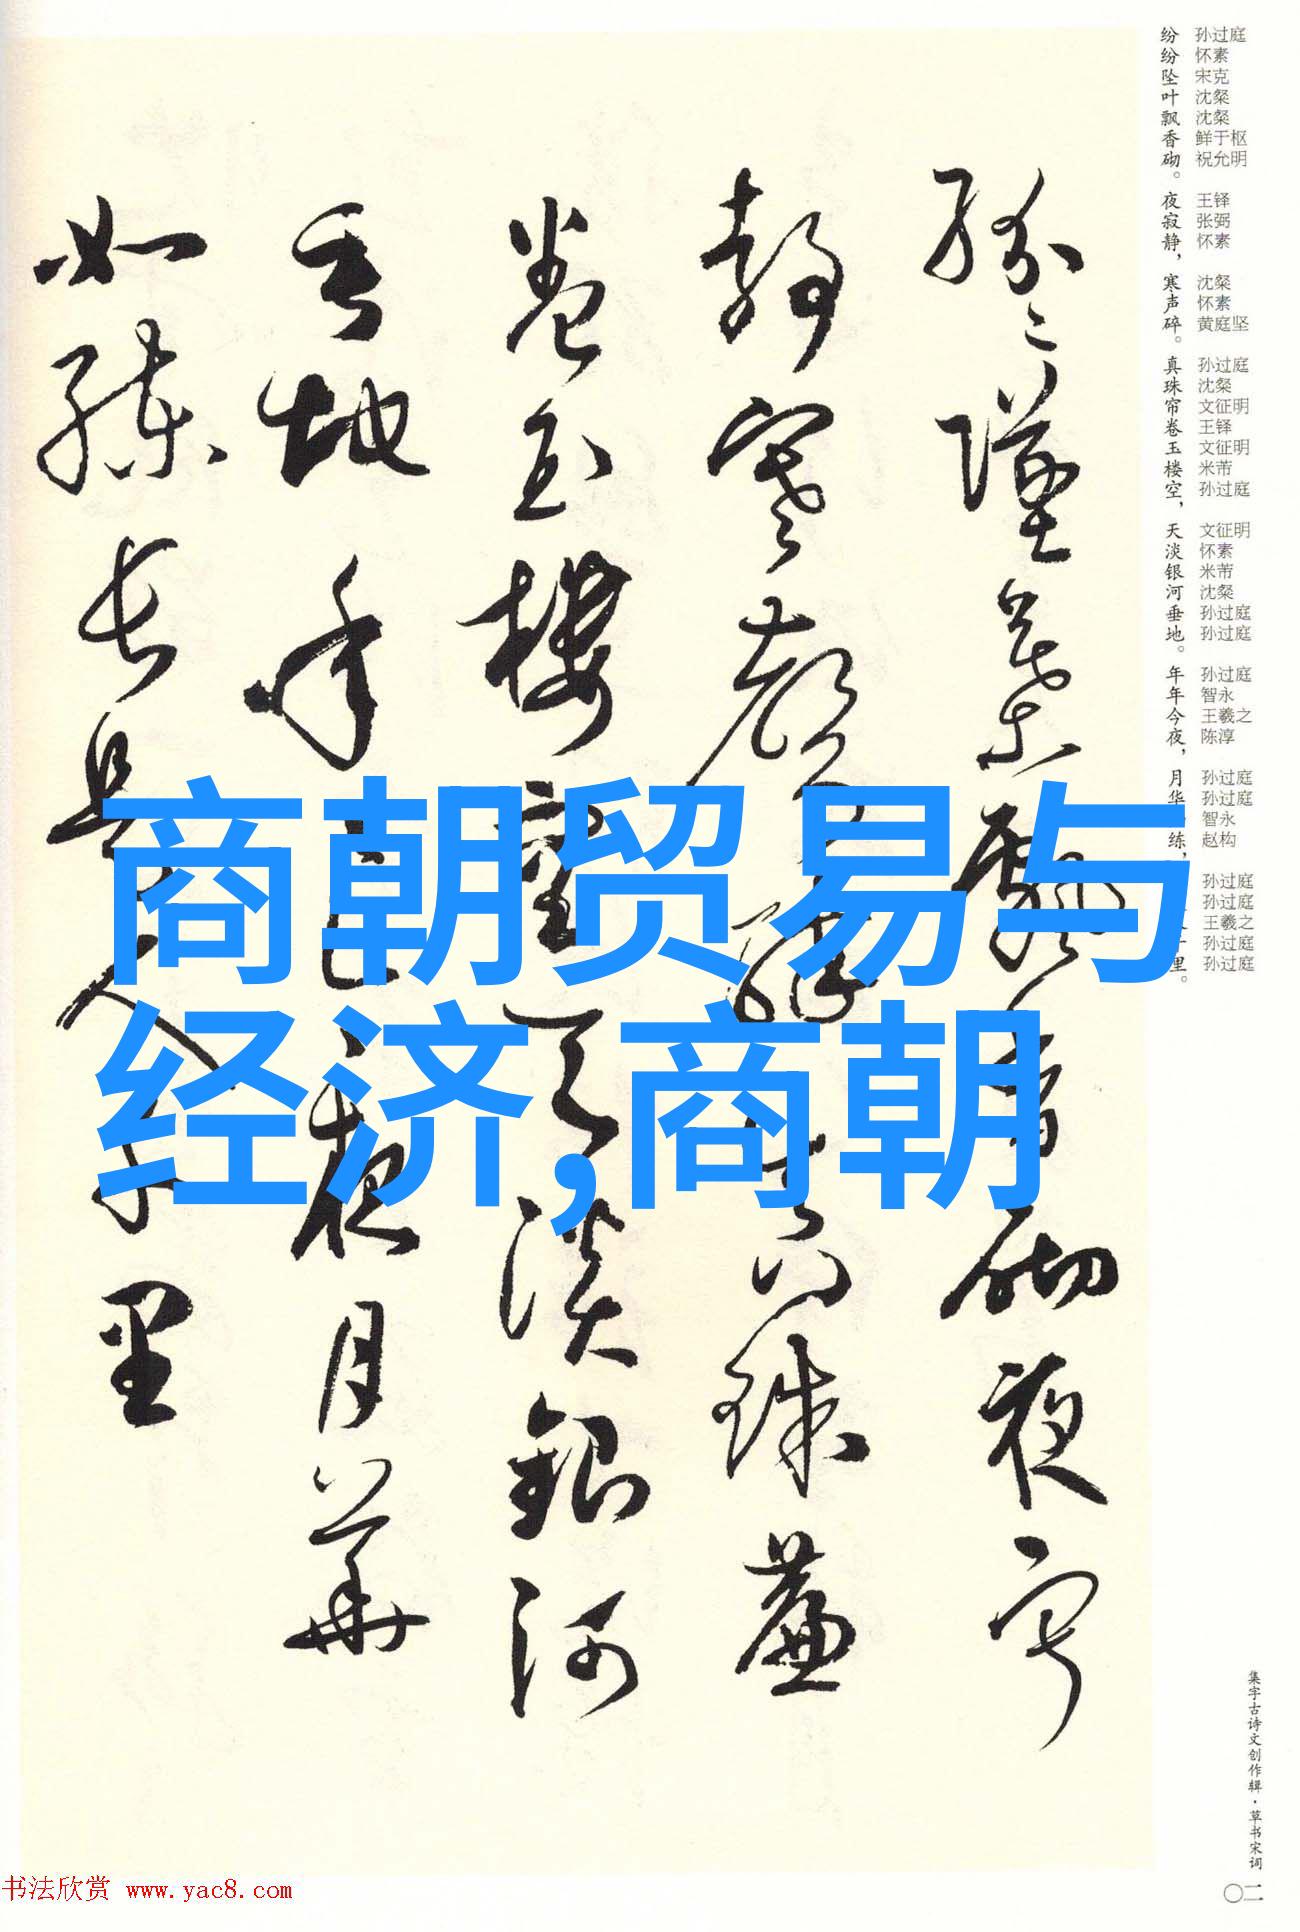 纷纷坠叶飘香砌。夜寂静，寒声碎。真珠帘卷玉楼空，天淡银河垂地。年年今夜，月华
练，
里。
孙过庭
怀素
宋克
沈粲
沈粲
鲜于枢
祝允明
王铎
张弼
怀素
沈粲
怀素
黄庭坚
孙过庭
沈粲
文征明
王铎
文征明
米芾
孙过庭
文征明
怀素
米芾
沈粲
孙过庭
孙过庭
孙过庭
智永
王羲之
陈淳
孙过庭
孙过庭
智永
赵构
孙过庭
孙过庭
王羲之
孙过庭
孙过庭
纷〻坠叶飘香砌夜寂
静寒声碎真珠帘
卷玉楼空天淡银河
垂地年〻今夜月华
如练长是人千里
商朝贸易与
经济,商朝
集字古诗文创作辑·草书宋词
〇二
书法欣赏 www.yac8.com